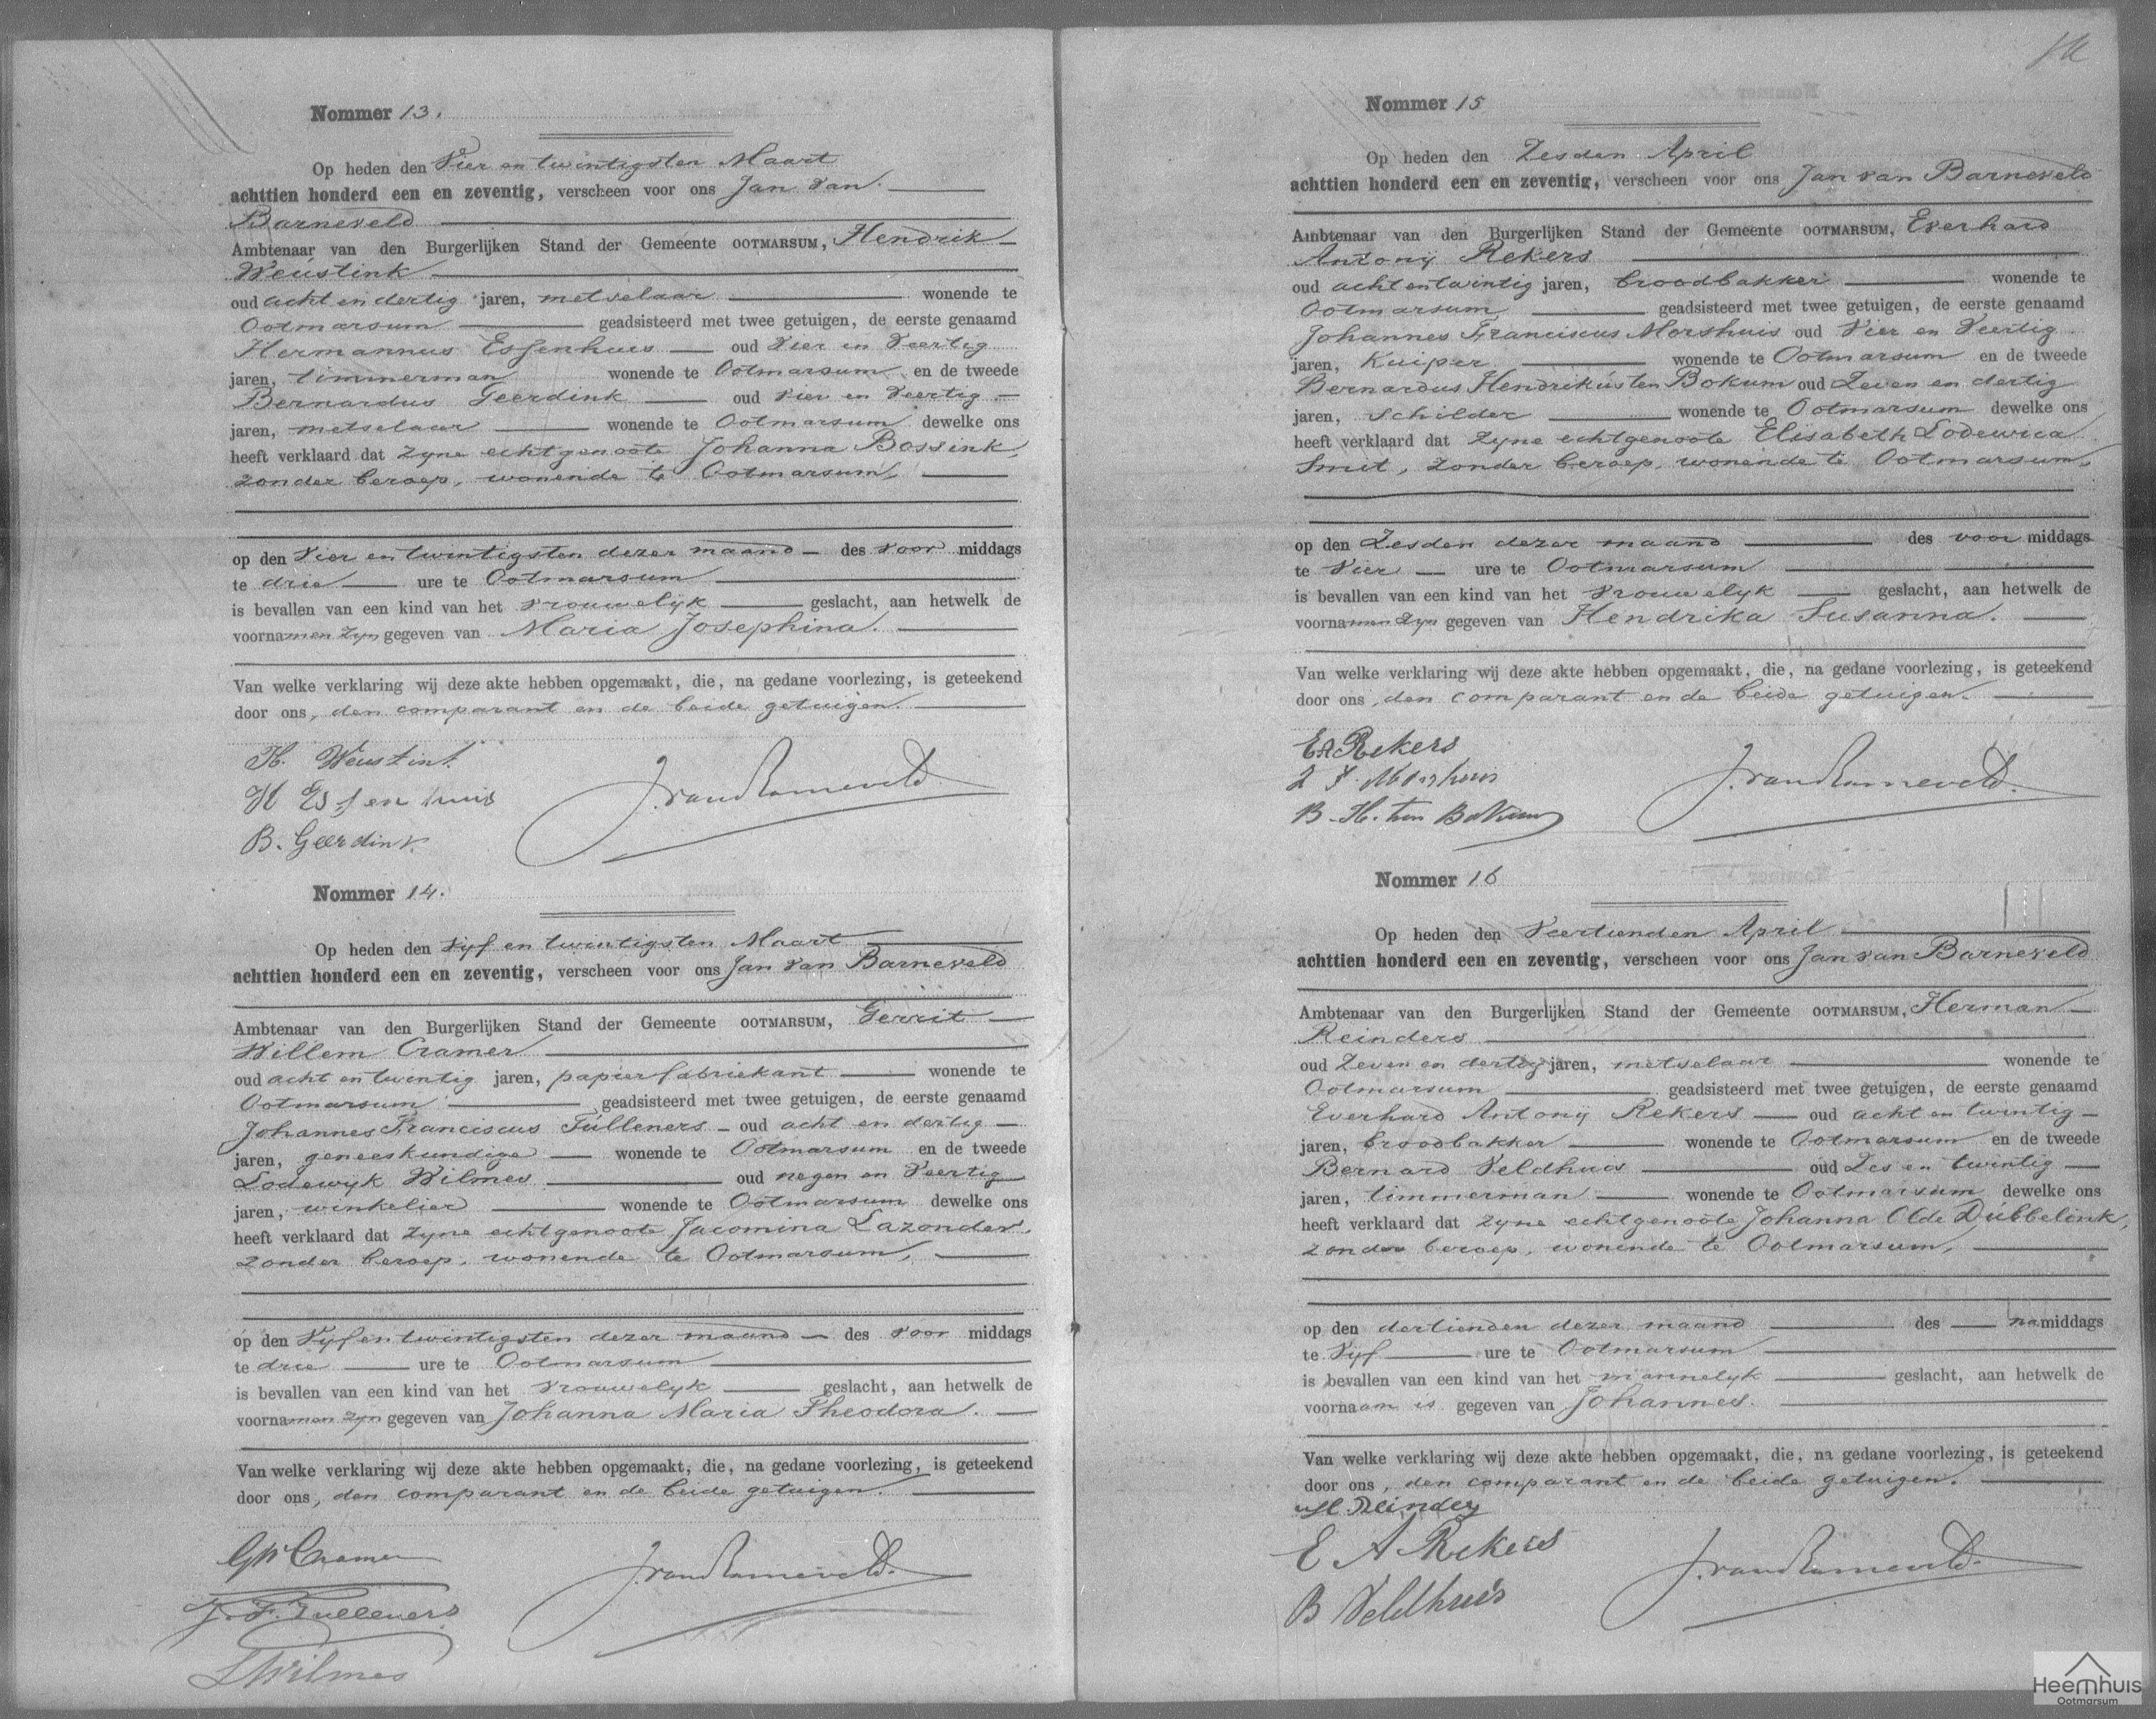 Nommer 13.
Op heden den Vier en twintigsten Maart
achttien honderd een en zeventig, verscheen voor ons Jan van
Barneveld
Ambtenaar van den Burgerlijken Stand der Gemeente OOTMARSUM, Hendrik
Weustink
oud acht en dertig jaren, metselaar wonende te
Ootmarsum geadsisteerd met twee getuigen, de eerste genaamd
Hermannus Essenhuis oud Vier en Veertig
jaren, timmerman wonende te Ootmarsum en de tweede
Bernardus Geerdink oud Vier en Veertig
jaren, metselaar wonende te Ootmarsum dewelke ons
heeft verklaard dat zyne echtgenoote Johanna Bossink,
zonder beroep, wonende te Ootmarsum,
op den Vier en twintigsten dezer maand des voor middags
te drie ure te Ootmarsum
is bevallen van een kind van het vrouwelyk geslacht, aan hetwelk de
voornamen zyn gegeven van Maria Josephina.
Van welke verklaring wij deze akte hebben opgemaakt, die, na gedane voorlezing, is geteekend
door ons, den comparant en de beide getuigen.
H. Weustink
H Essenhuis
B. Geerdink
J. van Barneveld.
Nommer 14.
Op heden den Vyf en twintigsten Maart
achttien honderd een en zeventig, verscheen voor ons Jan van Barneveld
Ambtenaar van den Burgerlijken Stand der Gemeente OOTMARSUM, Gerrit
Willem Cramer
oud acht en twintig jaren, papierfabriekant wonende te
Ootmarsum geadsisteerd met twee getuigen, de eerste genaamd
Johannes Franciscus Fülleners oud acht en dertig
jaren, geneeskundige wonende te Ootmarsum en de tweede
Lodewyk Wilmes oud negen en Veertig
jaren, winkelier wonende te Ootmarsum dewelke ons
heeft verklaard dat zyne echtgenoote Jacomina Lazonder,
zonder beroep, wonende te Ootmarsum,
op den Vyf en twintigsten dezer maand des voor middags
te drie ure te Ootmarsum
is bevallen van een kind van het vrouwelyk geslacht, aan hetwelk de
voornamen zyn gegeven van Johanna Maria Theodora.
Van welke verklaring wij deze akte hebben opgemaakt, die, na gedane voorlezing, is geteekend
door ons, den comparant en de beide getuigen.
GW Cramer
J. F. Fulleners
L Wilmes
J. van Barneveld.
Nommer 15
Op heden den Zesden April
achttien honderd een en zeventig, verscheen voor ons Jan van Barneveld
Ambtenaar van den Burgerlijken Stand der Gemeente OOTMARSUM, Everhard
Antonij Rekers
oud acht en twintig jaren, broodbakker wonende te
Ootmarsum geadsisteerd met twee getuigen, de eerste genaamd
Johannes Franciscus Morshuis oud Vier en Veertig
jaren, Kuiper wonende te Ootmarsum en de tweede
Bernardus Hendrikus ten Bokum oud Zeven en dertig
jaren, Schilder wonende te Ootmarsum dewelke ons
heeft verklaard dat zyne echtgenoote Elisabeth Lodewica
Smit, zonder beroep, wonende te Ootmarsum,
op den Zesden dezer maand des voor middags
te Vier ure te Ootmarsum
is bevallen van een kind van het vrouwelyk geslacht, aan hetwelk de
voornamen zyn gegeven van Hendrika Susanna.
Van welke verklaring wij deze akte hebben opgemaakt, die, na gedane voorlezing, is geteekend
door ons, den comparant en de beide getuigen.
EA Rekers
J F Morshuis
B. H. ten Bokum
J. van Barneveld.
Nommer 16
Op heden den Veertienden April
achttien honderd een en zeventig, verscheen voor ons Jan van Barneveld
Ambtenaar van den Burgerlijken Stand der Gemeente OOTMARSUM, Herman
Reinders
oud Zeven en dertig jaren, metselaar wonende te
Ootmarsum geadsisteerd met twee getuigen, de eerste genaamd
Everhard Antonij Rekers oud acht en twintig
jaren, broodbakker wonende te Ootmarsum en de tweede
Bernard Veldhuis oud Zes en twintig
jaren, timmerman wonende te Ootmarsum dewelke ons
heeft verklaard dat zyne echtgenoote Johanna Olde Dubbelink,
zonder beroep, wonende te Ootmarsum,
op den dertienden dezer maand des na middags
te Vyf ure te Ootmarsum
is bevallen van een kind van het mannelyk geslacht, aan hetwelk de
voornaam is gegeven van Johannes.
Van welke verklaring wij deze akte hebben opgemaakt, die, na gedane voorlezing, is geteekend
door ons, den comparant en de beide getuigen.
H. Reinders
E A Rekers
B Veldhuis
J. van Barneveld.
Heemhuis
Ootmarsum